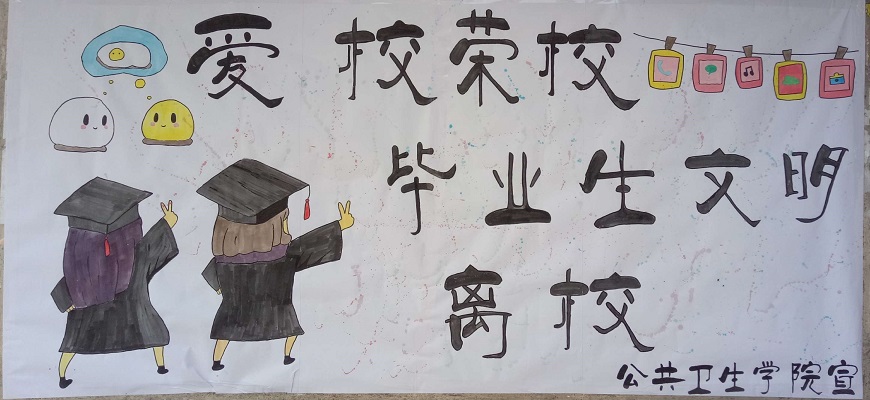 爱校荣校
毕业生文明
离校
公共卫生学院宣